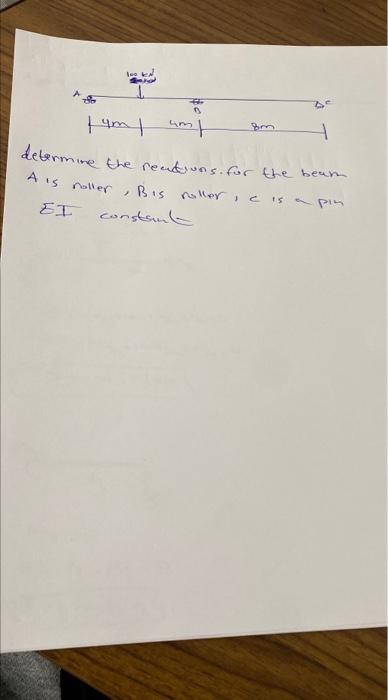 100 kN
A
B
C
4m 4m 8m
determine the reactions. for the beam
A is roller, B is roller, c is a pin
EI constant